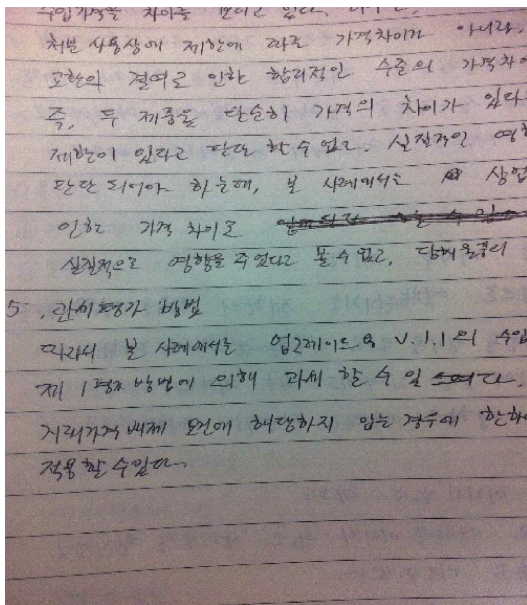 수입가격을 차이를 보이고 있다.
처분 사용상에 제한에 따른 가격차이가 아니라,
결여로 인한 합리적인 수준의 가격차이
즉, 두 제품을 단순히 가격의 차이가 있다
제한이 있다고 판단 할 수 없고, 실질적인 영향
판단 되어야 하는데, 본 사례에서는 상업
인한 가격 차이로
실질적으로 영향을 주었다고 볼 수 없고, 당해물품의
5. 관세평가 방법
따라서 본 사례에서는 업그레이드용 V.1.1의 수입
제 1 평가방법에 의해 과세 할 수 있다.
거래가격 배제 요건에 해당하지 않는 경우에 한하
적용할 수 있다.